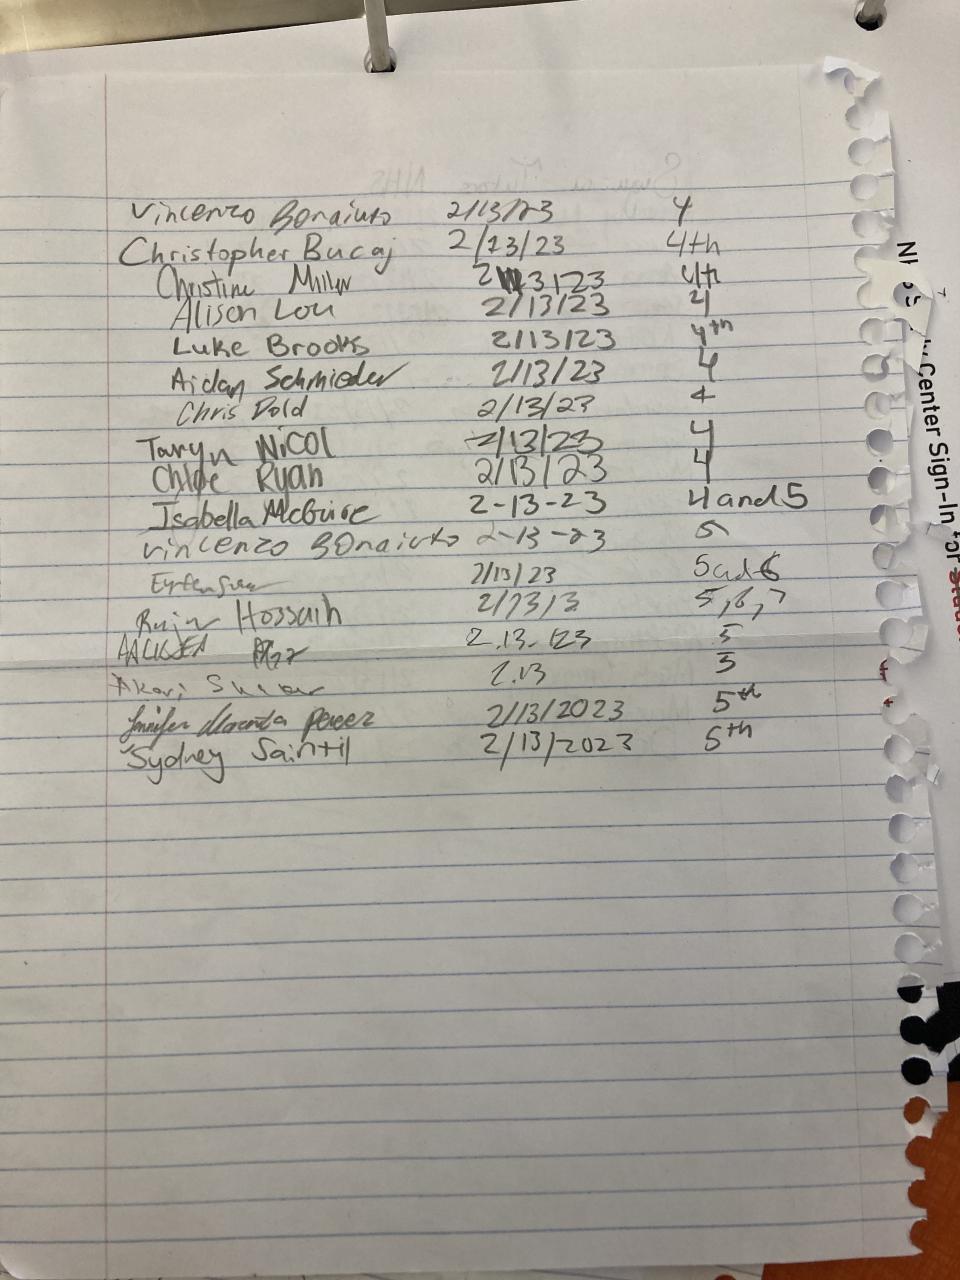 Vincenzo Bonaiuto 2/13/23 4
Christopher Bucaj 2/13/23 4th
Christine Miller 2/13/23 4th
Alison Lou 2/13/23 4
Luke Brooks 2/13/23 4th
Aidan Schmieder 2/13/23 4
Chris Dold 2/13/23 4
Taryn Nicol 2/13/23 4
Chloe Ryan 2/13/23 4
Isabella McGuire 2-13-23 4 and 5
Vincenzo Bonaiuto 2-13-23 5
2/13/23 5 and 6
Hossain 2/13/3 5,6,7
2.13.23 5
Akari 2.13 5
Jennifer Perez 2/13/2023 5th
Sydney Saintil 2/13/2023 5th
Center Sign-In for